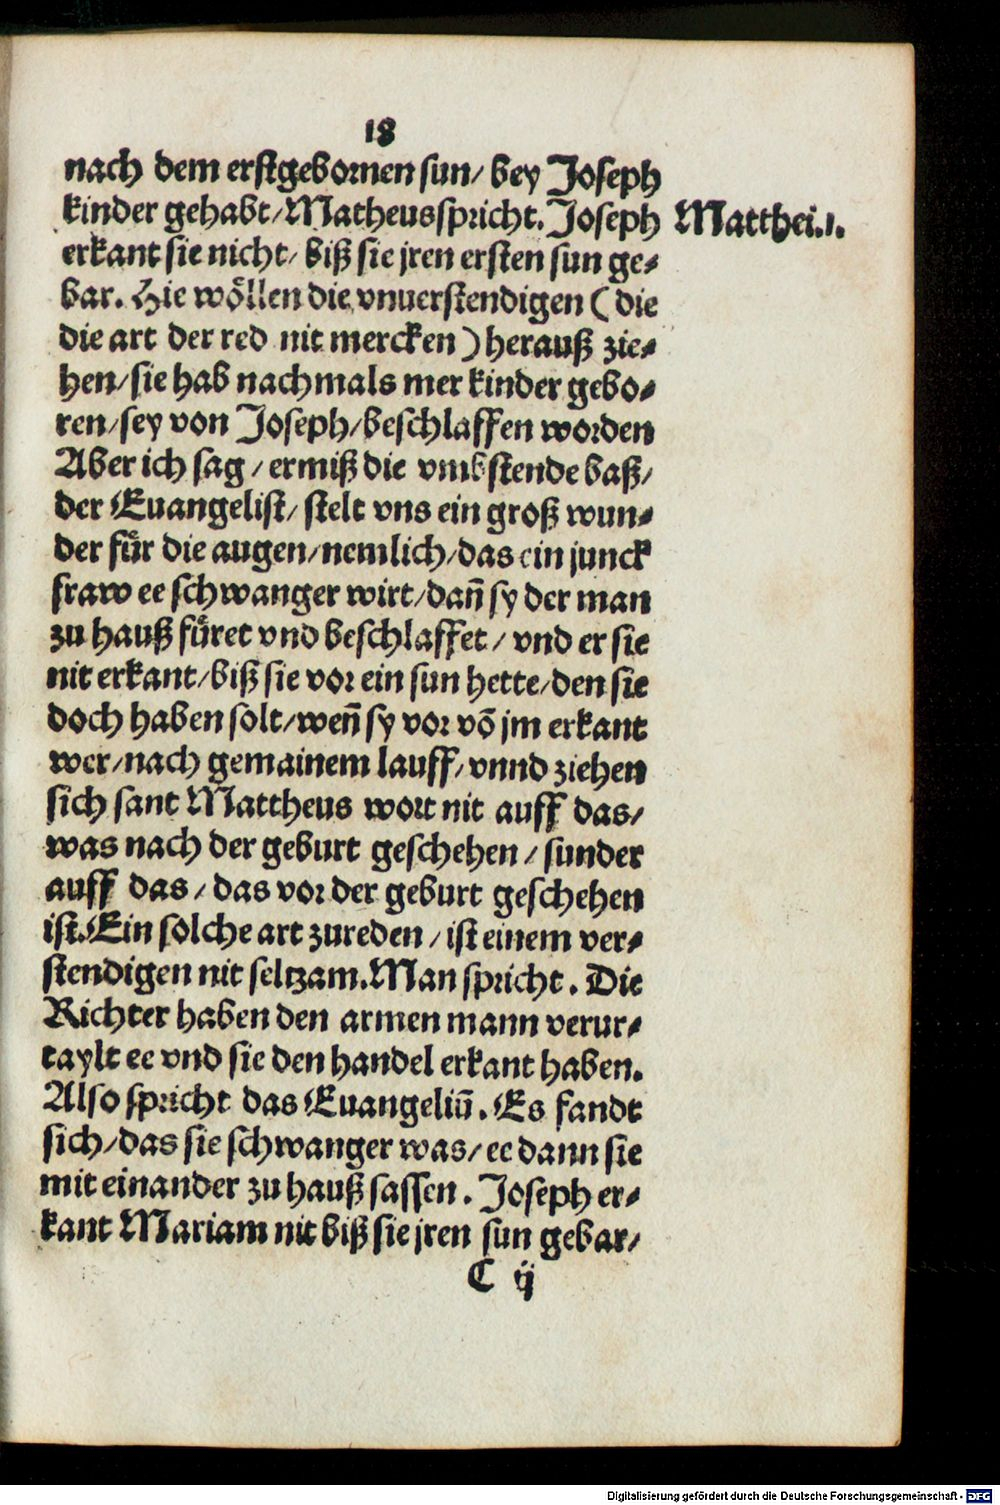 18
nach dem erstgebornen sun/ bey Joseph
kinder gehabt/ Matheus spricht. Joseph
Matthei.1.
erkant sie nicht/ biß sie jren ersten sun ge-
bar. Hie wöllen die vnuerstendigen (die
die art der red nit mercken) herauß zie-
hen/ sie hab nachmals mer kinder gebo-
ren/ sey von Joseph/ beschlaffen worden
Aber ich sag / ermiß die vmbstende baß/
der Euangelist/ stelt vns ein groß wun-
der für die augen/ nemlich/ das ein junck
fraw ee schwanger wirt/ dañ sy der man
zu hauß füret vnd beschlaffet / vnd er sie
nit erkant/ biß sie vor ein sun hette/ den sie
doch haben solt/ weñ sy vor võ jm erkant
wer/ nach gemainem lauff/ vnnd ziehen
sich sant Mattheus wort nit auff das/
was nach der geburt geschehen / sunder
auff das / das vor der geburt geschehen
ist. Ein solche art zureden / ist einem ver-
stendigen nit seltzam. Man spricht. Die
Richter haben den armen mann verur-
taylt ee vnd sie den handel erkant haben.
Also spricht das Euangeliũ. Es fandt
sich/ das sie schwanger was/ ee dann sie
mit einander zu hauß sassen. Joseph er-
kant Mariam nit biß sie jren sun gebar/
C ij
Digitalisierung gefördert durch die Deutsche Forschungsgemeinschaft - DFG